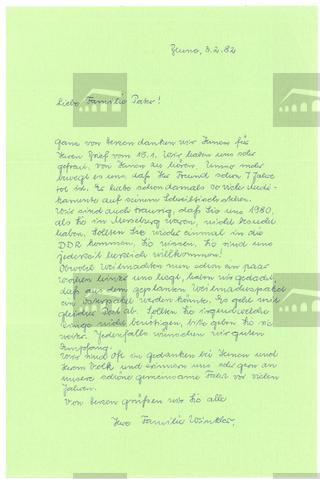 Leuna, 3.2.82
Liebe Familie Pater!
Ganz von Herzen danken wir Ihnen für
Ihren Brief vom 15.1. Wir haben uns sehr
gefreut, von Ihnen zu hören. Immer mehr
bewegt es uns, daß Ihr Freund schon 7 Jahre
tot ist. Er hatte schon damals so viele Medi-
kamente auf seinem Schreibtisch stehen.
Wir sind auch traurig, daß Sie uns 1980,
als Sie in Merseburg waren, nicht besucht
haben. Sollten Sie wieder einmal in die
DDR kommen, Sie wissen, Sie sind uns
jederzeit herzlich willkommen!
Obwohl Weihnachten nun schon ein paar
Wochen hinter uns liegt, haben wir gedacht,
daß aus dem geplanten Weihnachtspaket
ein Osterpaket werden könnte. Es geht mit
gleicher Post ab. Sollten Sie irgendwelche
Dinge nicht benötigen, bitte geben Sie sie
weiter. Jedenfalls wünschen wir guten
Empfang.
Wir sind oft in Gedanken bei Ihnen und
Ihrem Volk und erinnern uns sehr gern an
unsere schöne gemeinsame Fahrt vor vielen
Jahren.
Von Herzen grüßen wir Sie alle
Ihre Familie Winkler.